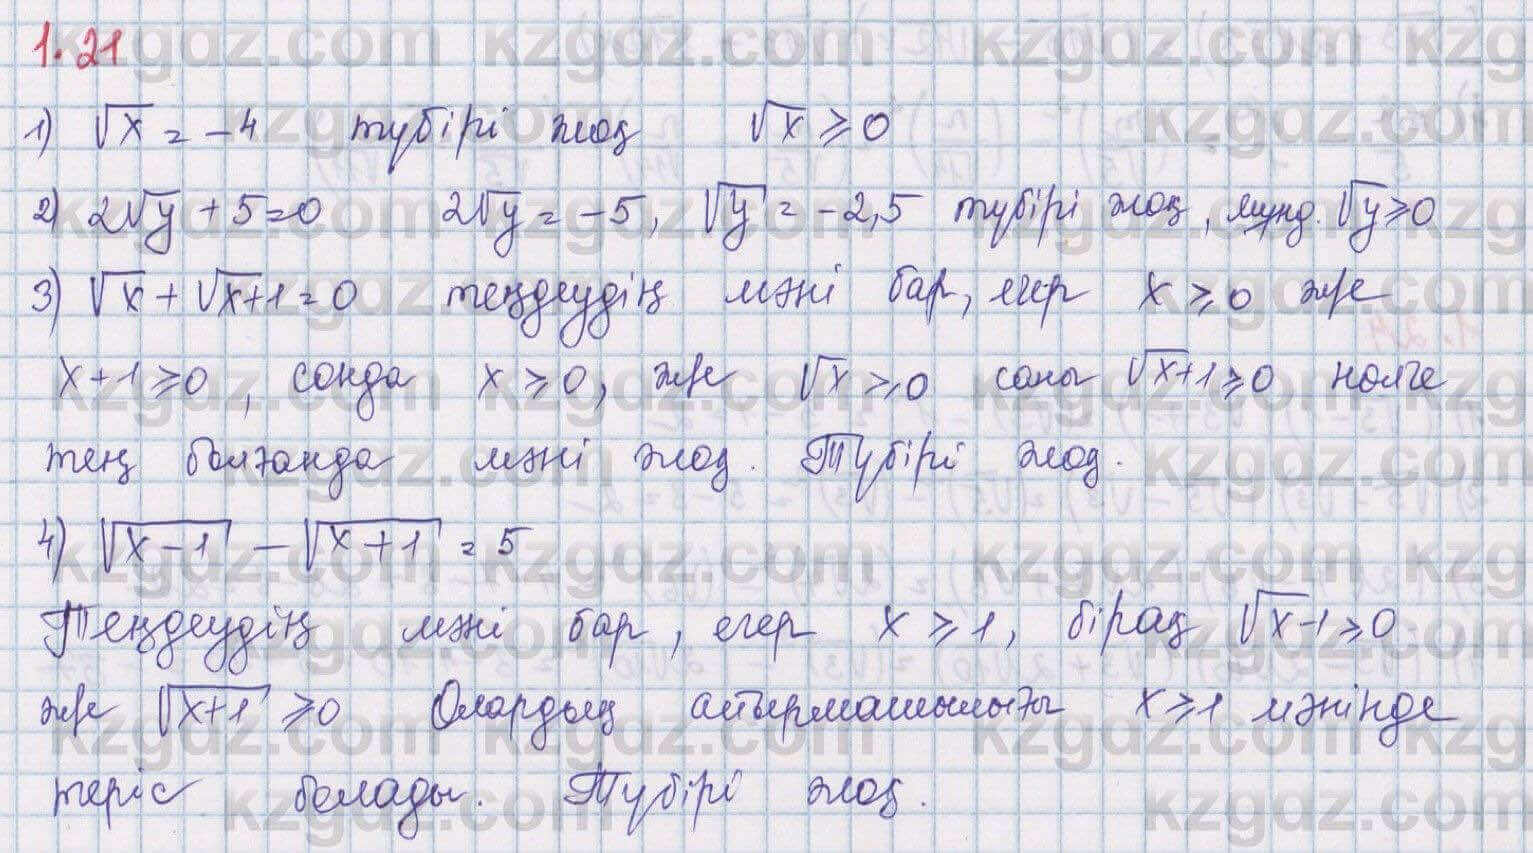 1.21
1) √x = -4 түбірі жоқ √x ≥ 0
2) 2√y + 5 = 0 2√y = -5, √y = -2,5 түбірі жоқ, мұнд. √y ≥ 0
3) √x + √x+1 = 0 теңдеудің мәні бар, егер x ≥ 0 және
x+1 ≥ 0, сонда x ≥ 0, және √x ≥ 0 саны √x+1 ≥ 0 нөлге
тең болғанда мәні жоқ. Түбірі жоқ.
4) √x-1 - √x+1 = 5
Теңдеудің мәні бар, егер x ≥ 1, бірақ √x-1 ≥ 0
және √x+1 ≥ 0 Олардың айырмашылығы x ≥ 1 мәнінде
теріс болады. Түбірі жоқ.
kzgdz.com